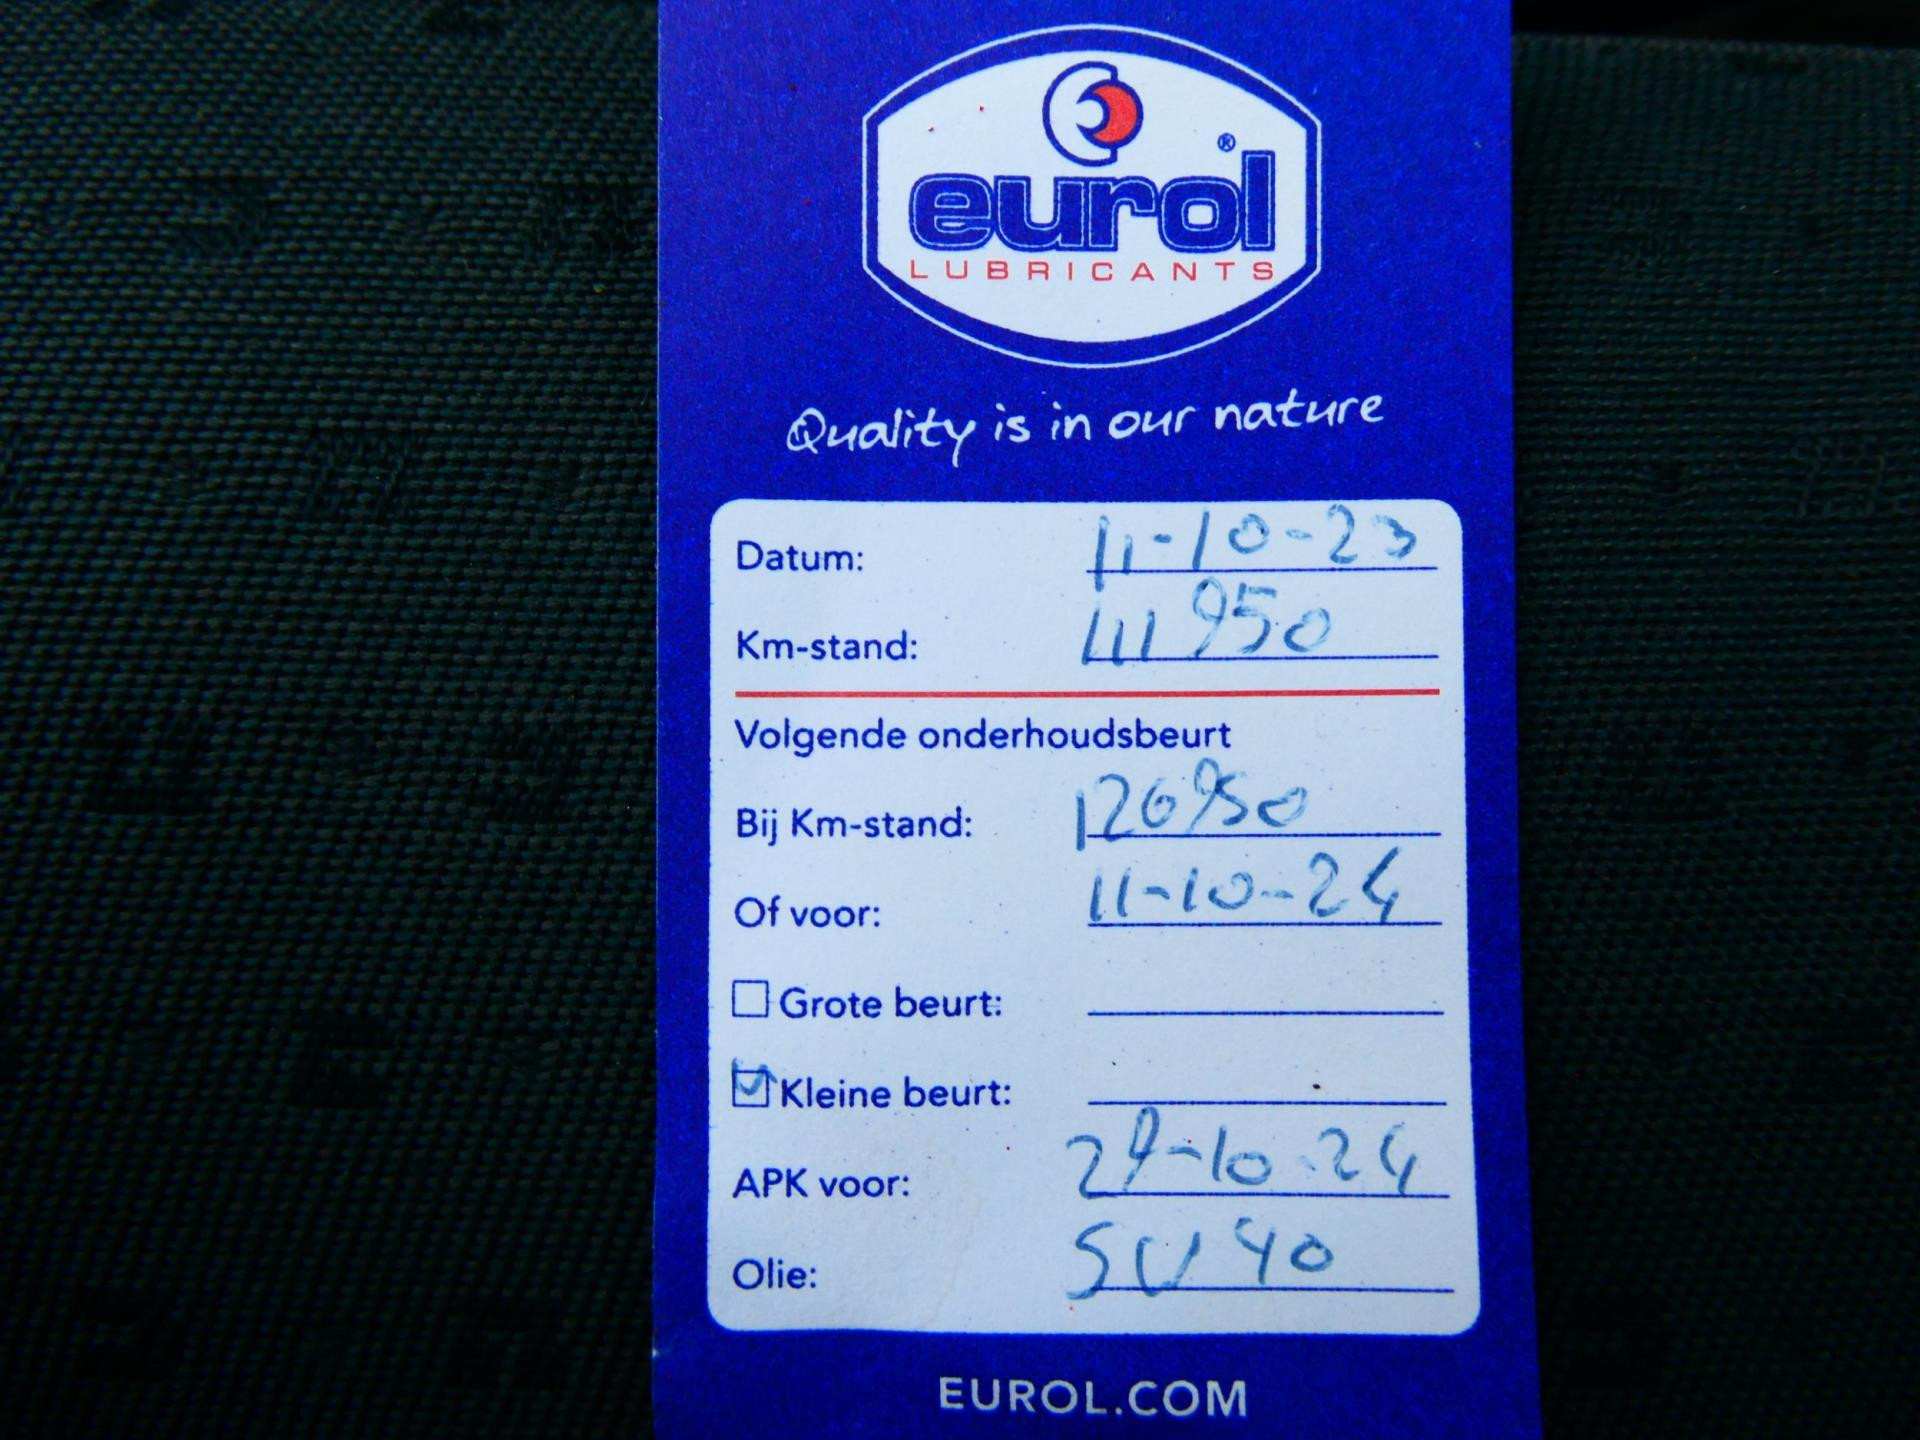 eurol®
LUBRICANTS
Quality is in our nature
Datum: 11-10-23
Km-stand: 111950
Volgende onderhoudsbeurt
Bij Km-stand: 126950
Of voor: 11-10-24
Grote beurt:
Kleine beurt:
APK voor: 29-10-24
Olie: 5W40
EUROL.COM